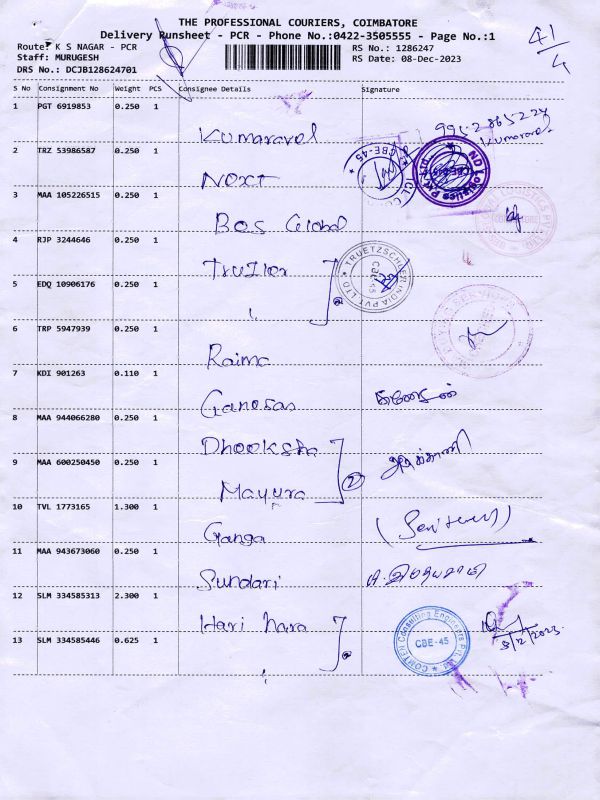 THE PROFESSIONAL COURIERS, COIMBATORE
Delivery Runsheet - PCR - Phone No.:0422-3505555 - Page No.:1
41/4
Route: K S NAGAR - PCR
RS No.: 1286247
Staff: MURUGESH
RS Date: 08-Dec-2023
DRS No.: DCJB128624701
S No Consignment No Weight PCS Consignee Details Signature
1 PGT 6919853 0.250 1 Kumaravel
Kumaravel
2 TRZ 53986587 0.250 1 Next
CBE-45
ND Logistics Pvt Ltd.
3 MAA 105226515 0.250 1 Bos Global
4 RJP 3244646 0.250 1 Trutzler
TRUETZSCHLER INDIA PVT LTD
CBE-45
5 EDQ 10906176 0.250 1 "
6 TRP 5947939 0.250 1 Raima
7 KDI 901263 0.110 1 Ganesan
8 MAA 944066280 0.250 1 Dhooksha
9 MAA 600250450 0.250 1 Mayura
2
10 TVL 1773165 1.300 1 Ganga
11 MAA 943673060 0.250 1 Sundari
12 SLM 334585313 2.300 1 Hari hara
Consulting Engineers Pvt Ltd
CBE-45
13 SLM 334585446 0.625 1 "